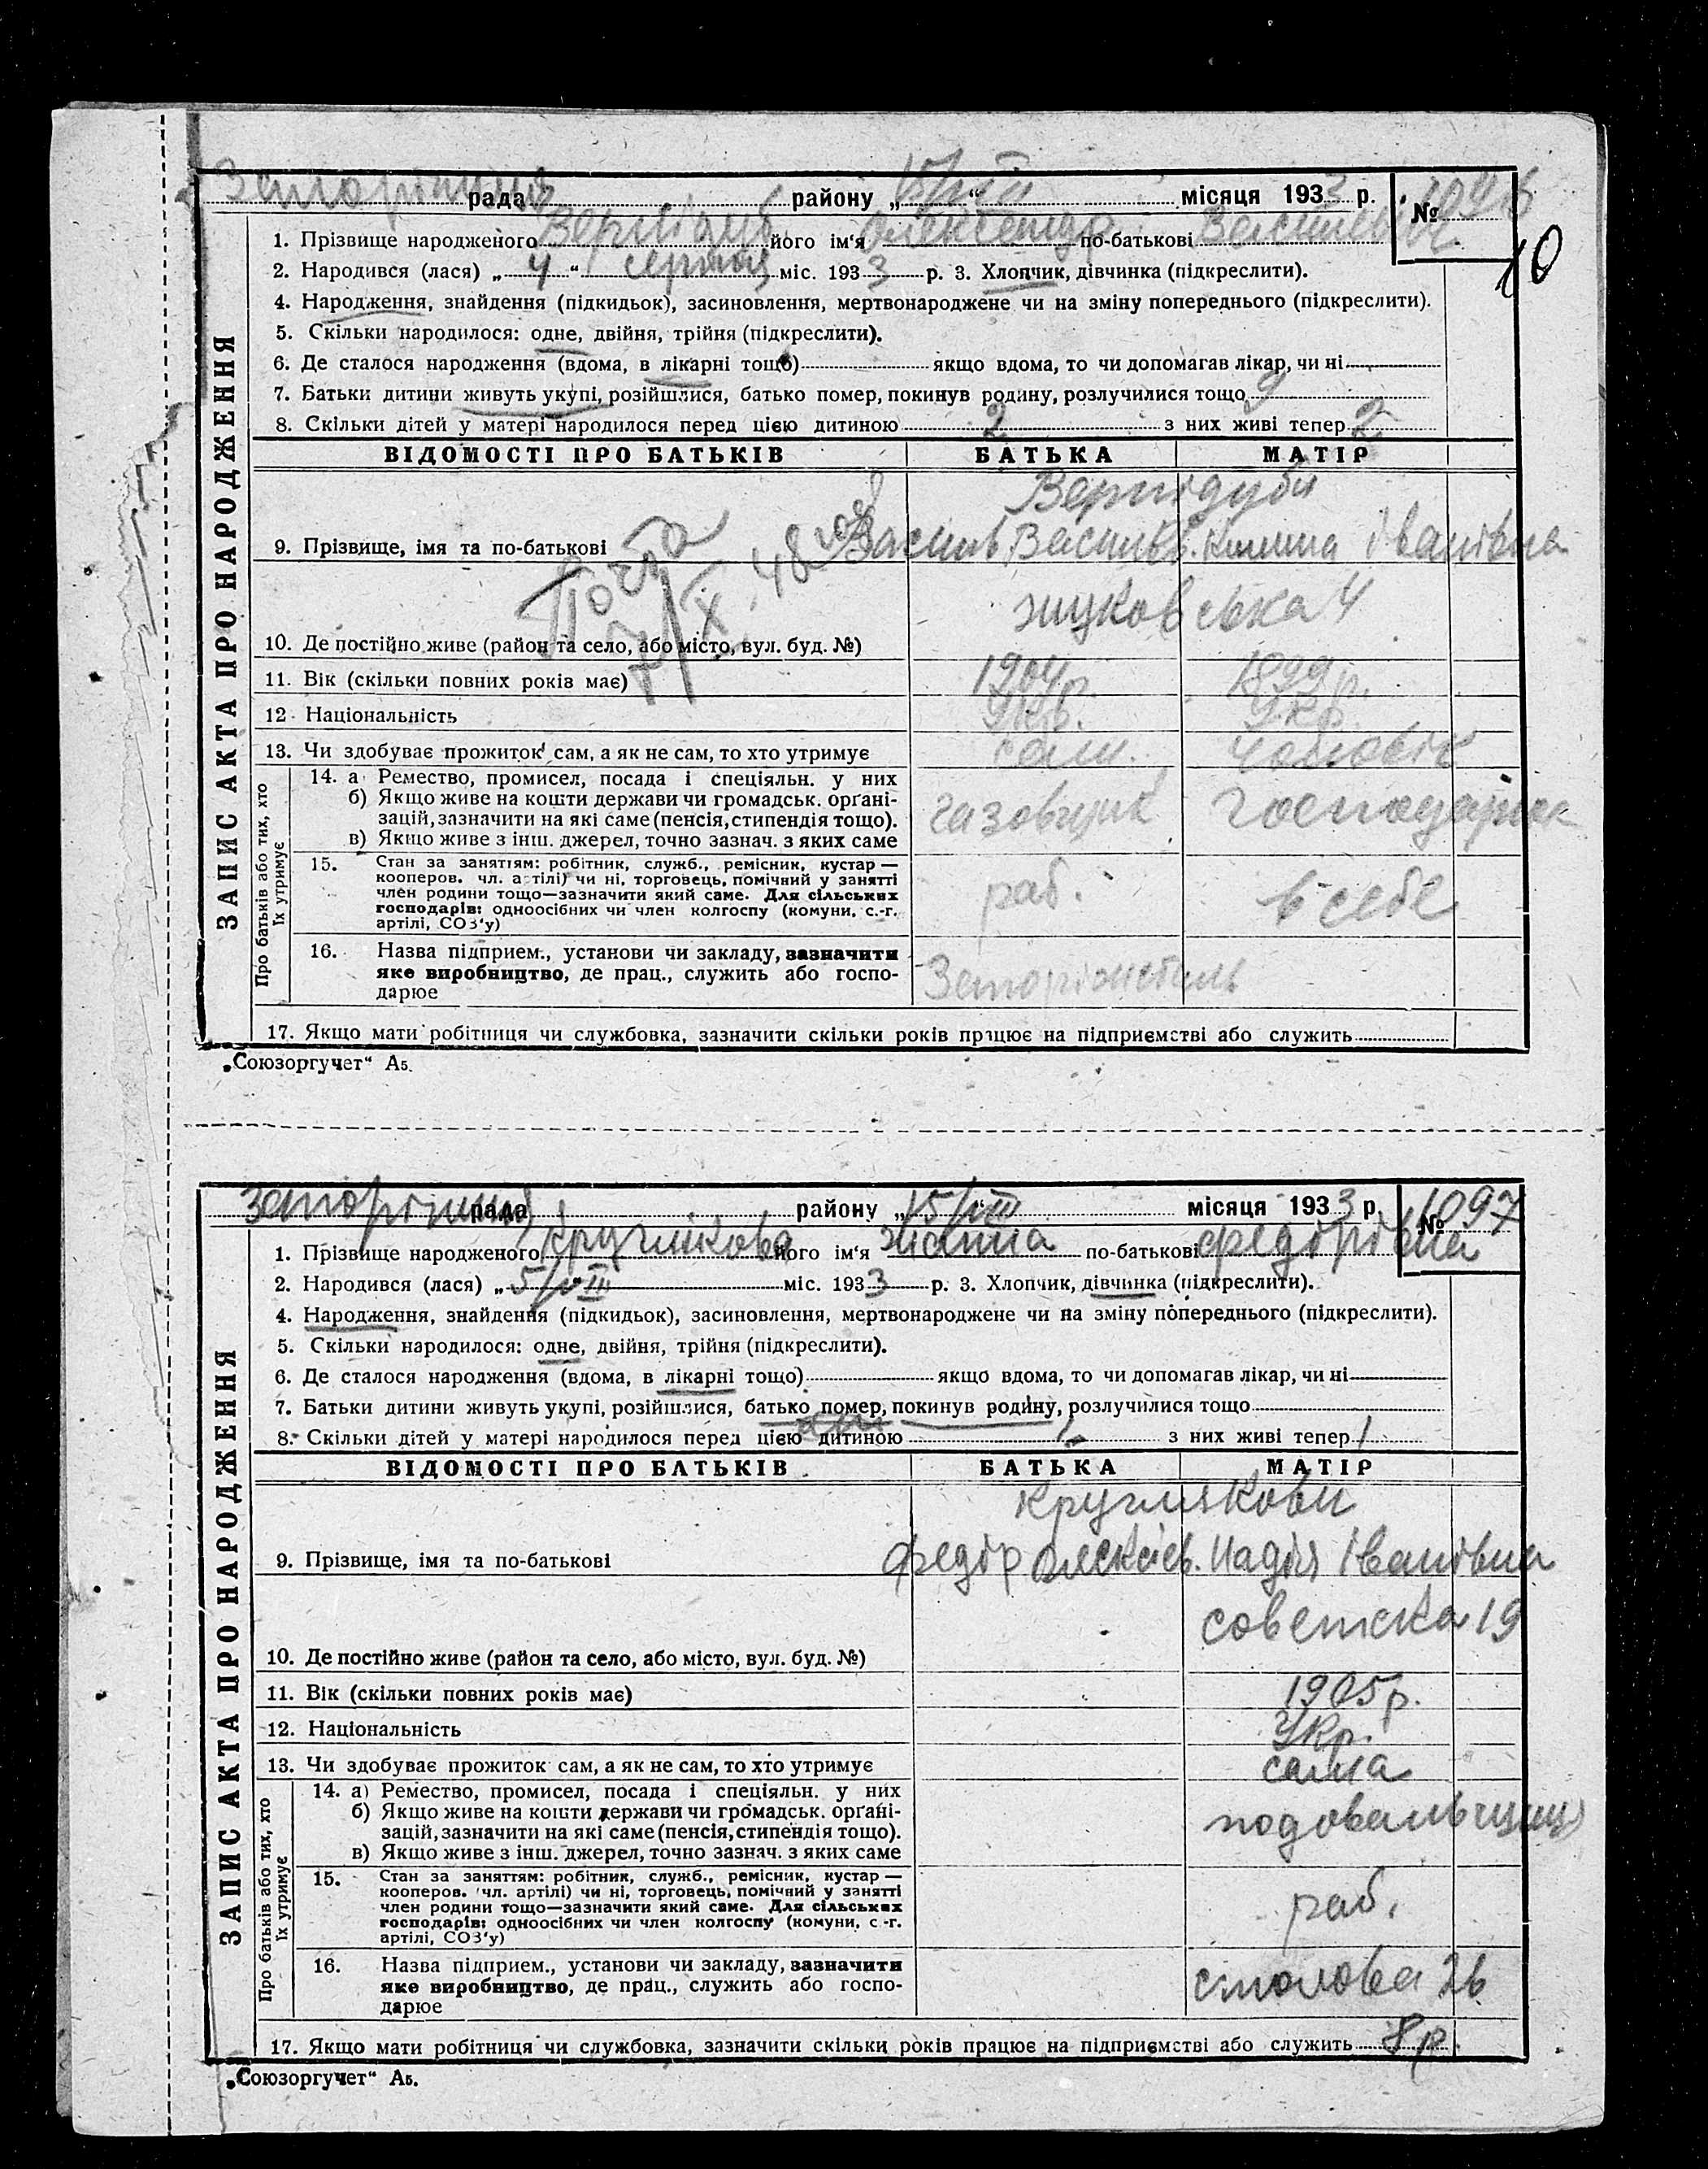 рада району „15/VIII“ місяця 1933 р. № 1096
10
1. Прізвище народженого Вернідуб його ім'я Олександр по-батькові Васильевич
2. Народився (лася) „4“ серпня міс. 1933 р. 3. Хлопчик, дівчинка (підкреслити).
4. Народження, знайдення (підкидьок), засиновлення, мертвонароджене чи на зміну попереднього (підкреслити).
5. Скільки народилося: одне, двійня, трійня (підкреслити).
6. Де сталося народження (вдома, в лікарні тощо) якщо вдома, то чи допомагав лікар, чи ні
7. Батьки дитини живуть укупі, розійшлися, батько помер, покинув родину, розлучилися тощо
8. Скільки дітей у матері народилося перед цією дитиною 2 з них живі тепер 2
ЗАПИС АКТА ПРО НАРОДЖЕННЯ
ВІДОМОСТІ ПРО БАТЬКІВ БАТЬКА МАТІР
Вернідуби
9. Прізвище, імя та по-батькові Василь Васильев. Іванівна
10. Де постійно живе (район та село, або місто, вул. буд. №) жуковська 4
11. Вік (скільки повних років має) 1904р. 1899р.
12. Національність Укр. Укр.
13. Чи здобуває прожиток сам, а як не сам, то хто утримує сам. чоловік
Про батьків або тих, хто їх утримує
14. а) Ремество, промисел, посада і спеціяльн. у них
б) Якщо живе на кошти держави чи громадськ. органі-
зацій, зазначити на які саме (пенсія, стипендія тощо). газовщик господарює
в) Якщо живе з інш. джерел, точно зазнач. з яких саме
15. Стан за заняттям: робітник, служб., ремісник, кустар —
кооперов. чл. артілі) чи ні, торговець, помічний у занятті
член родини тощо—зазначити який саме. Для сільських раб. в себе
господарів: одноосібних чи член колгоспу (комуни, с.-г.
артілі, СОЗ'у)
16. Назва підприєм., установи чи закладу, зазначити
яке виробництво, де прац., служить або госпо- Запоріжсталь
дарює
17. Якщо мати робітниця чи службовка, зазначити скільки років працює на підприємстві або служить
„Союзоргучет“ А5.
рада району „15/VIII“ місяця 1933 р. № 1097
1. Прізвище народженого Круглікова його ім'я Жанна по-батькові Федорівна
2. Народився (лася) „5/VIII міс. 1933 р. 3. Хлопчик, дівчинка (підкреслити).
4. Народження, знайдення (підкидьок), засиновлення, мертвонароджене чи на зміну попереднього (підкреслити).
5. Скільки народилося: одне, двійня, трійня (підкреслити).
6. Де сталося народження (вдома, в лікарні тощо) якщо вдома, то чи допомагав лікар, чи ні
7. Батьки дитини живуть укупі, розійшлися, батько помер, покинув родину, розлучилися тощо
8. Скільки дітей у матері народилося перед цією дитиною 1 з них живі тепер 1
ЗАПИС АКТА ПРО НАРОДЖЕННЯ
ВІДОМОСТІ ПРО БАТЬКІВ БАТЬКА МАТІР
Круглякови
9. Прізвище, імя та по-батькові Федір Олексієв. Надія Іванівна
10. Де постійно живе (район та село, або місто, вул. буд. №) советска 19
11. Вік (скільки повних років має) 1905р.
12. Національність Укр.
13. Чи здобуває прожиток сам, а як не сам, то хто утримує сама
Про батьків або тих, хто їх утримує
14. а) Ремество, промисел, посада і спеціяльн. у них
б) Якщо живе на кошти держави чи громадськ. органі-
зацій, зазначити на які саме (пенсія, стипендія тощо). подовальщиця
в) Якщо живе з інш. джерел, точно зазнач. з яких саме
15. Стан за заняттям: робітник, служб., ремісник, кустар —
кооперов. чл. артілі) чи ні, торговець, помічний у занятті
член родини тощо—зазначити який саме. Для сільських раб.
господарів: одноосібних чи член колгоспу (комуни, с.-г.
артілі, СОЗ'у)
16. Назва підприєм., установи чи закладу, зазначити
яке виробництво, де прац., служить або госпо- столова 26
дарює
17. Якщо мати робітниця чи службовка, зазначити скільки років працює на підприємстві або служить 8 р.
„Союзоргучет“ А5.